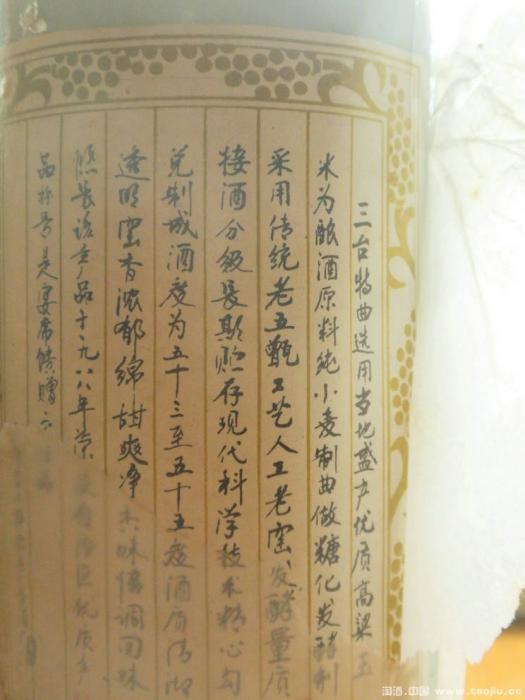 三台特曲选用当地盛产优质高粱玉
米为酿酒原料纯小麦制曲做糖化发酵剂
采用传统老五甑工艺人工老窖发酵量质
接酒分级长期贮存现代科学技术精心勾
兑制成酒度为五十三至五十五度酒质清澈
透明窖香浓郁绵甜爽净香味协调回味
悠长该产品于一九八八年荣
品称号是宴席馈赠
淘酒.中国 www.taojiu.cc